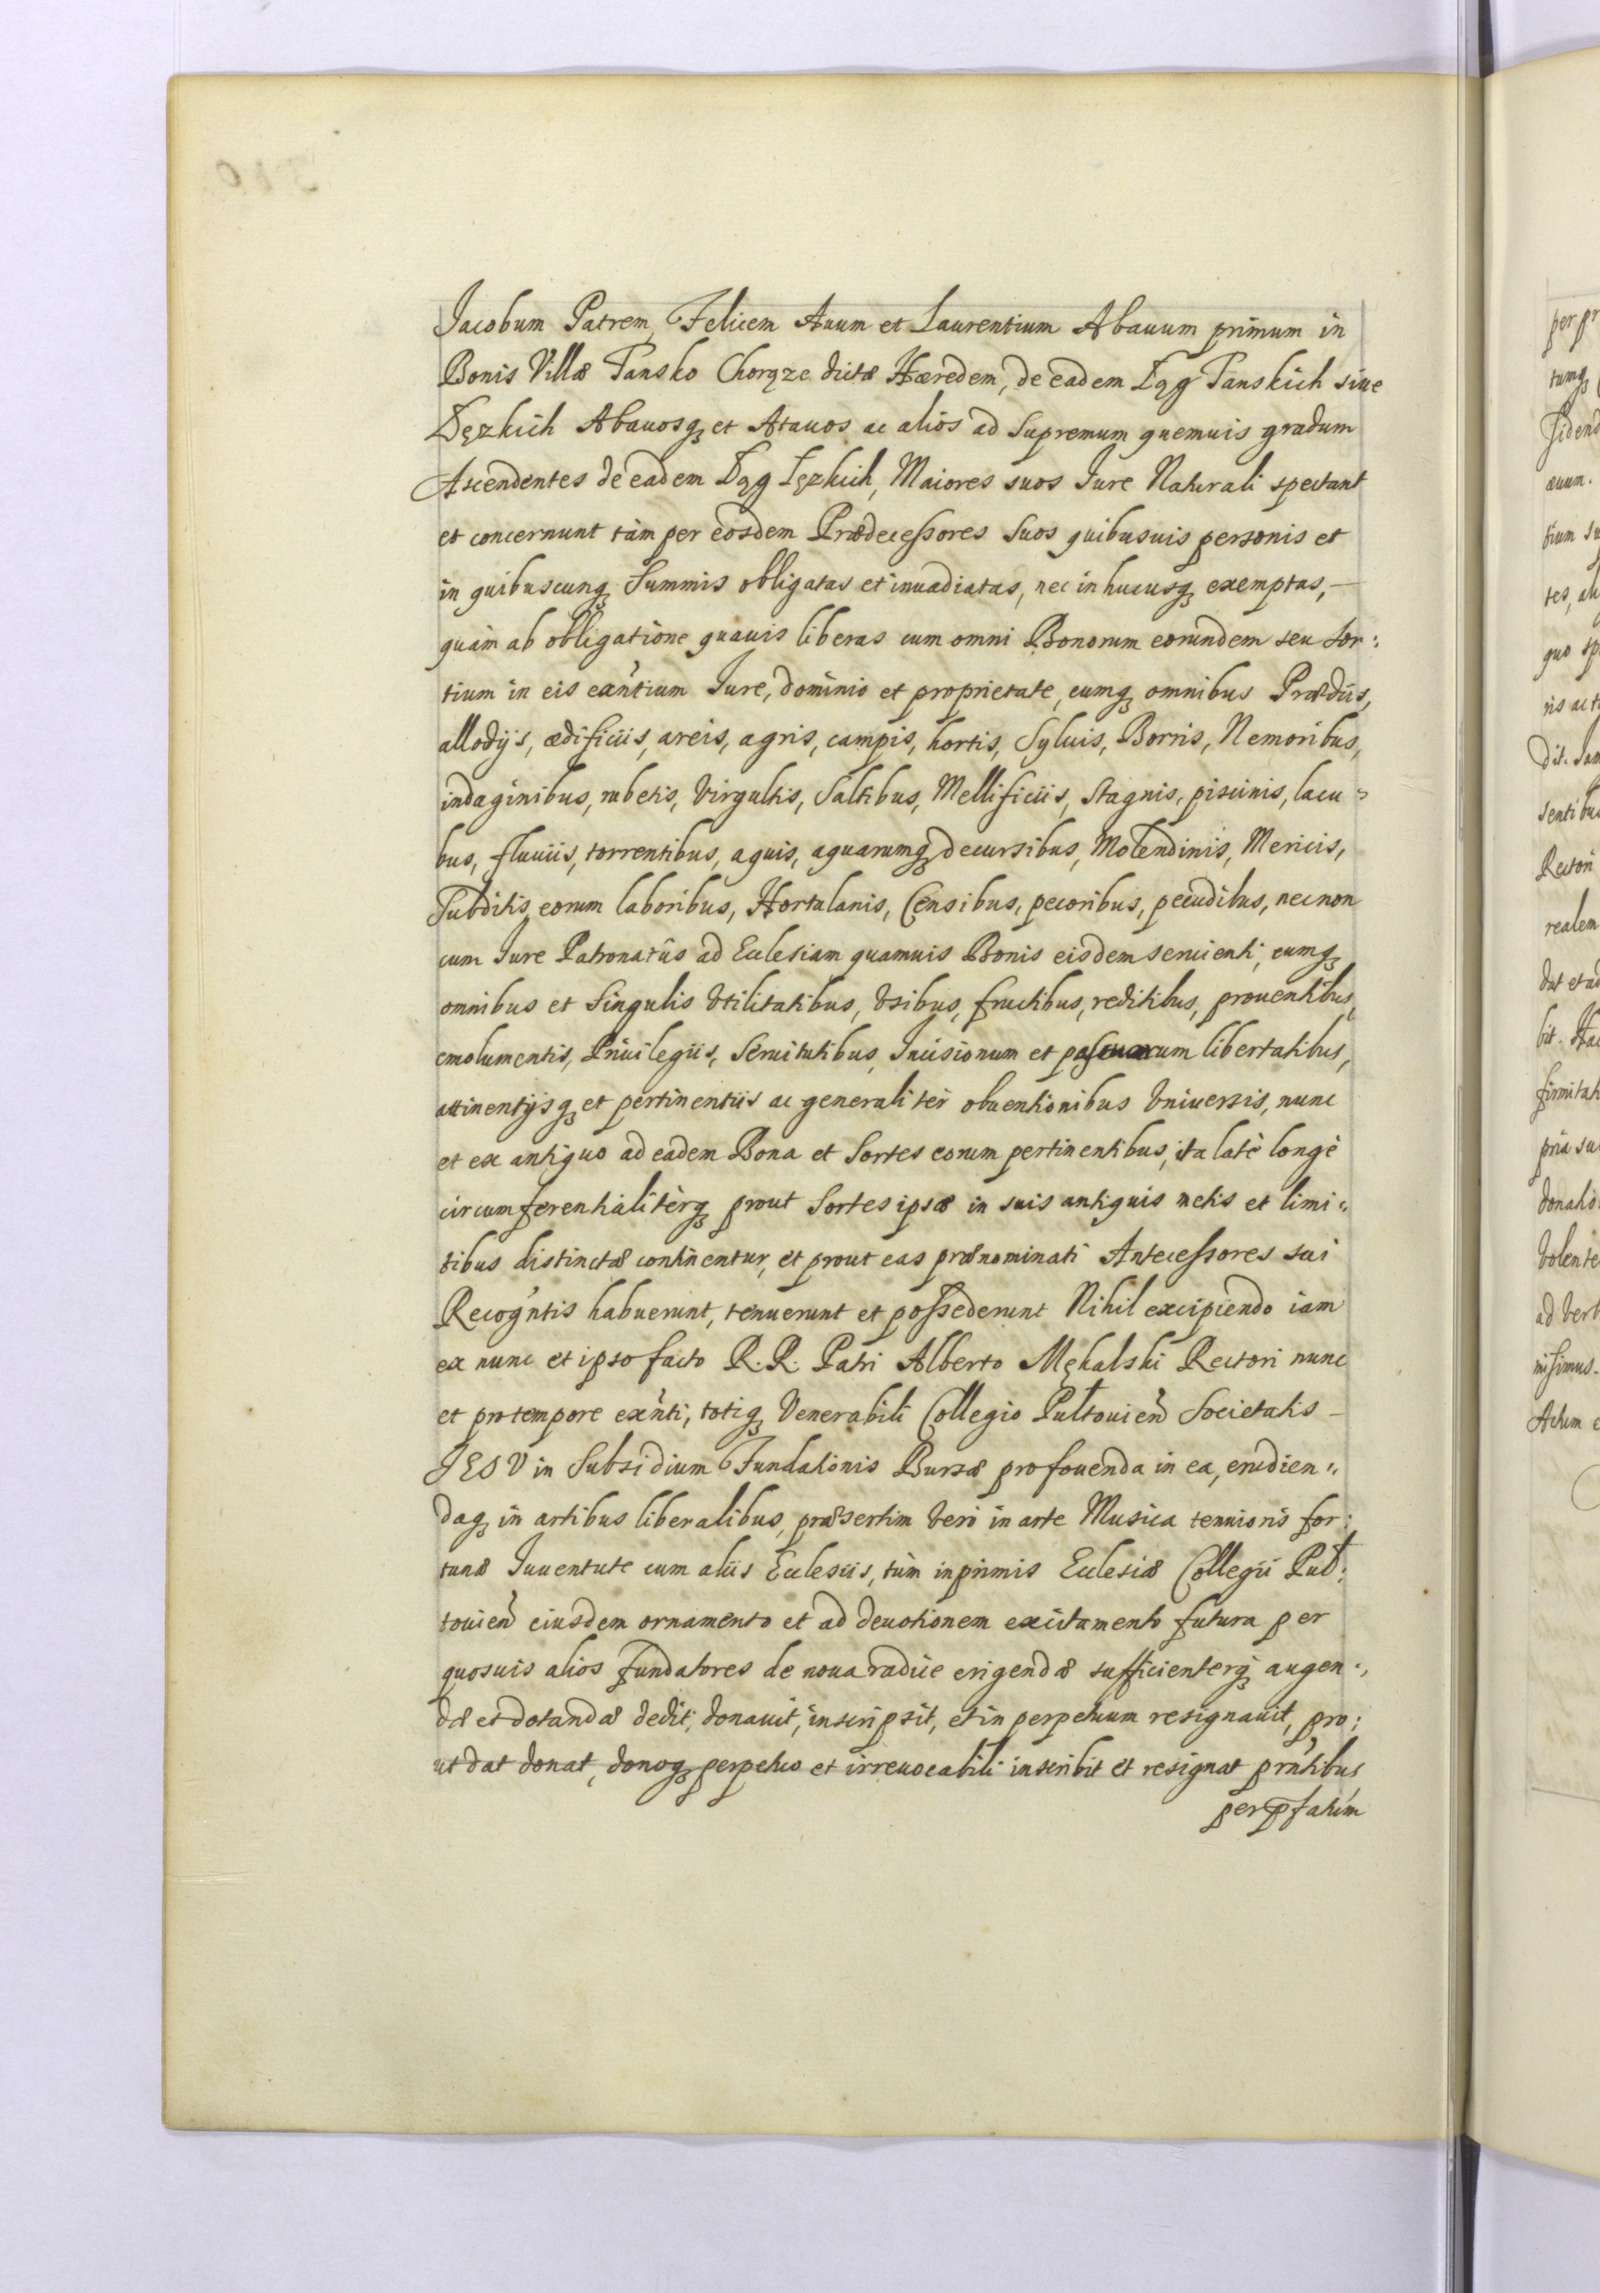 Jacobum Patrem, Felicem Auum et Laurentium Abauum primum in
Bonis Villæ Tansko Chorąze dictæ Hæredem, de eadem Łąg Tanskich siue
Łęzkich Abauosq₃ et Atauos ac alios ad Supremum quemuis gradum
Ascendentes de eadem Łąg Łęzkich, Maiores suos Iure Naturali spectant
et concernunt tàm per eosdem Prædecessores Suos quibusuis personis et
in quibuscunq₃ Summis obligatas et inuadiatas, nec in hucusq₃ exemptas,
quàm ab obligatione quauis liberas cum omni Bonorum eorundem seu Sor:
tium in eis exñtium Iure, dominio et proprietate, cumq₃ omnibus Prædiis,
allodijs, ædificiis, areis, agris, campis, hortis, Syluis, Borris, Nemoribus,
indaginibus, rubetis, Virgultis, Saltibus, Mellificiis, Stagnis, piscinis, lacu:
bus, fluuiis, torrentibus, aquis, aquarumq₃ decursibus, Molendinis, Mericis,
Subditis, eorum laboribus, Hortulanis, Censibus, pecoribus, pecudibus, necnon
cum Iure Patronatûs ad Ecclesiam quamuis Bonis eisdem seruienti, cumq₃
omnibus et Singulis Vtilitatibus, Vsibus, fructibus, reditibus, prouentibus,
emolumentis, Priuilegiis, Seruitutibus, Incisionum et pascuorum libertatibus,
attinentijsq₃ et pertinentiis ac generalitèr obuentionibus Vniuersis, nunc
et ex antiquo ad eadem Bona et Sortes eorum pertinentibus, ita latè longè
circumferentialitèrq₃ prout Sortes ipsæ in suis antiquis metis et limi:
tibus distinctæ continentur, et prout eas prænominati Antecessores sui
Recogñtis habuerunt, tenuerunt et possederunt Nihil excipiendo iam
ex nunc et ipso facto R. R. Patri Alberto Mękalski Rectori nunc
et pro tempore exñti, totiq₃ Venerabili Collegio Pułtouień Societatis
IESV in Subsidium Fundationis Bursæ pro fouenda in ea, erudien:
daq₃ in artibus liberalibus, præsertim Verò in arte Musica tenuioris for:
tunæ Iuuentute cum aliis Ecclesiis, tùm inprimis Ecclesiæ Collegii Puł:
touień eiusdem ornamento et ad deuotionem excitamento futura per
quosuis alios fundatores de noua radice erigendæ sufficienterq₃ augen:
dæ et dotandæ dedit, donauit, inscripsit, et in perpetuum resignauit, pro:
ut dat donat, donoq₃ perpetuo et irreuocabili inscribit et resignat pr̃ntibus
per p̃fatum